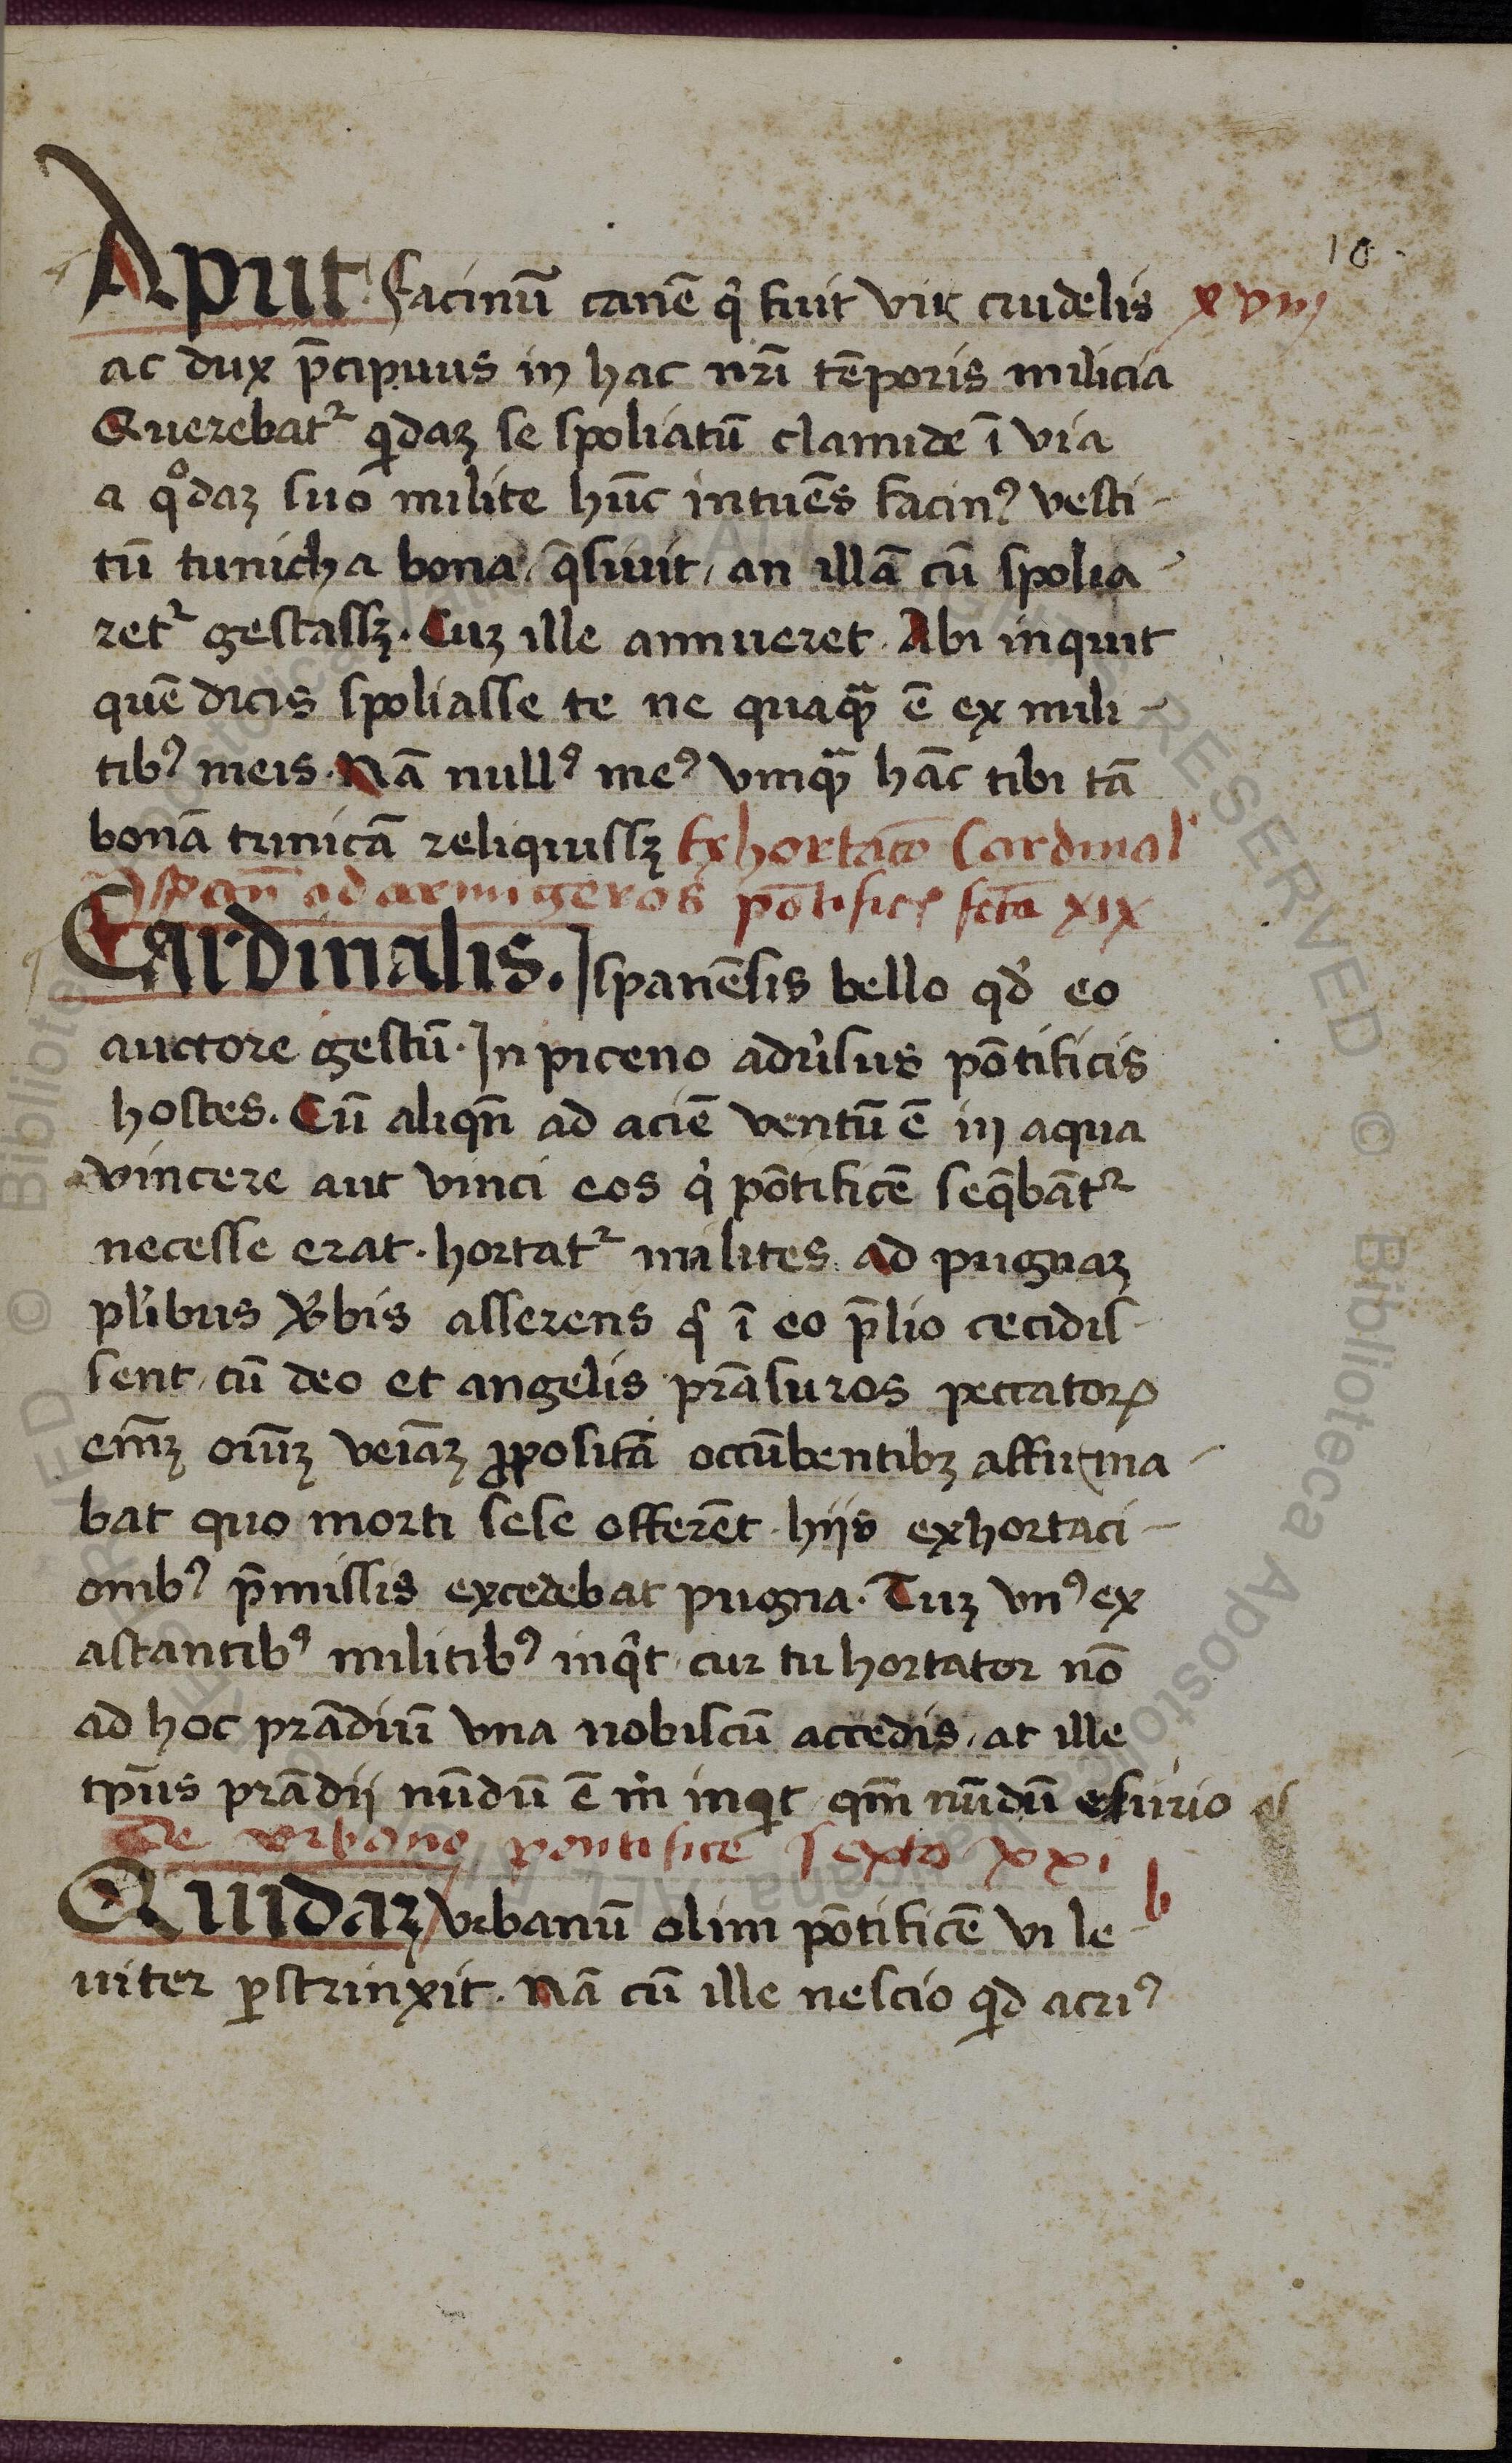 10
Aput facinū canē qͥ fuit vir crudelis xviij
ac dux p̄cipuus in hac nr̄i tēporis milicia
Querebatᷣ qͥdaꝫ se spoliatū clamide ī via
a qͦdaꝫ suo milite hūc intuēs facinꝰ vesti-
tū tunicha bona, q̄siuit, an illā cū spolia-
retᷣ gestassꝫ. Cuꝫ ille annueret. Abi inquit
quē dicis spoliasse te ne quaqᷓ ē ex mili-
tibꝰ meis. Nā nullꝰ meꝰ vnqᷓ hāc tibi tā
bonā tunicā reliquissꝫ Exhortacō Cardinal'
Ispan̄ ad armigeros pōtificꝭ fc̄ta xix
Cardinalis. Ispanēsis bello qd̓ eo
auctore gestū. In piceno aduͥsus pōtificis
hostes. Cū aliqn̄ ad aciē ventū ē in aqua
vincere aut vinci eos qͥ pōtificē seq̄bātᷣ
necesse erat. hortatᷣ milites ad pugnaꝫ
plͥibus v̓bis asserens qͥ ī eo p̄lio cecidis-
sent, cū deo et angelis prāsuros peccatorꝝ
em̄ꝫ oīuꝫ veīaꝫ ꝓpositā occūbentibꝫ affirma-
bat quo morti sese offerēt. hijs exhortaci-
onibꝰ p̄missis excedebat pugna. Tuꝫ vnꝰ ex
astantibꝰ militibꝰ inqͥt, cur tu hortator nō
ad hoc prādiū vna nobiscū accedis, at ille
tp̄us prādij nūdū ē m̓ inqͥt, qm̄ nūdū esurio
De vrbano pontifice sexto xxi
Quidaꝫ vrbanū olim pōtificē vi le- b
uiter ꝑstrinxit. Nā cū ille nescio qͥd acriꝰ
© Biblioteca Apostolica Vaticana ALL RIGHTS RESERVED © Biblioteca Apostolica Vaticana ALL RIGHTS RESERVED